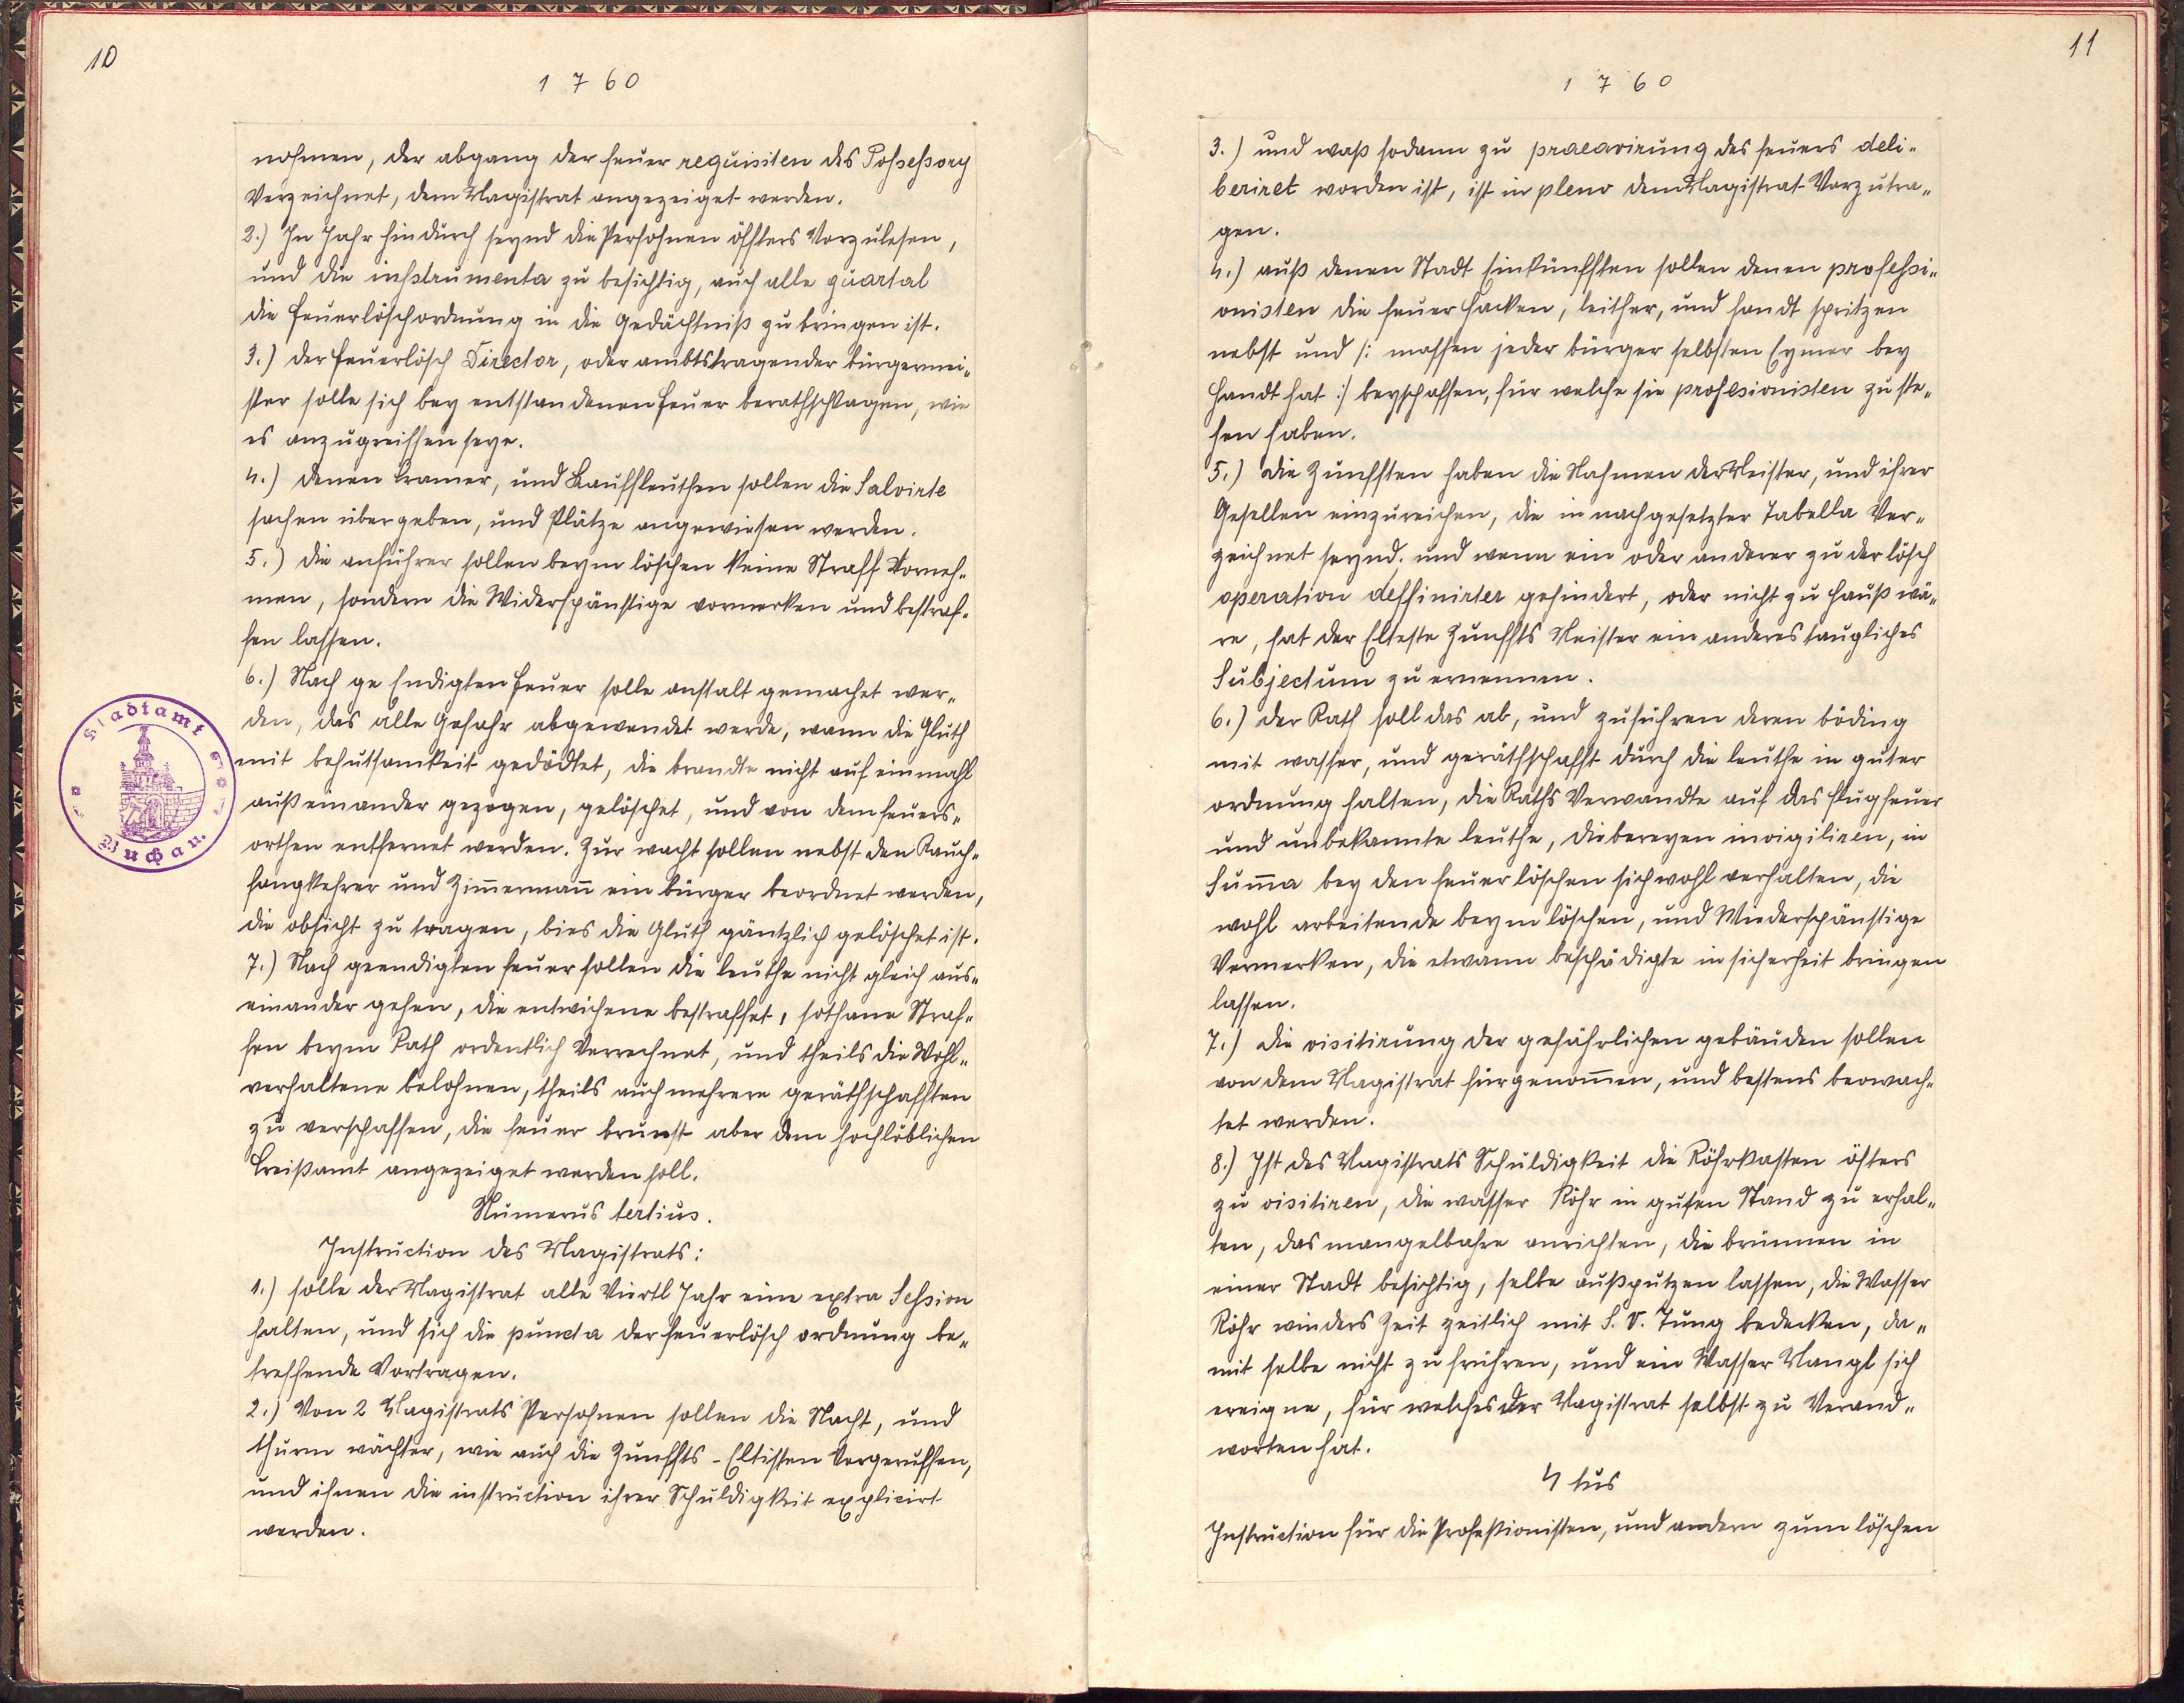 10
1760
nohmen, der abgang der feuer requisiten des Possessory
Verzeichnet, dem Magistrat angezeiget werden.
2.) In Jahr hindurch seynd die Persohnen öffters Vorzulesen,
und die instrumenta zu besichtig, auch alle quartal
die feuerlöschordnung in die Gedächtniß zu bringen ist.
3.) der feuerlösch Director, oder ambtstragender bürgermei„
ster solle sich bey entstandenen feuer berathschlagen, wie
es anzugreiffen seye.
4.) denen Cramer, und Kauffleuthen sollen die Salvirte
sachen übergeben, und Plätze angewiesen werden.
5.) die anführer sollen beym löschen keine Straff Vorneh„
men, sondern die Widerspänstige vormerken und bestraf„
fen lassen.
6.) Nach ge Endigten feuer solle anstalt gemachet wer„
den, das alle Gefahr abgewendet werde, wann die Gluth
mit behuttsamkeit gedödtet, die brandte nicht auf einmahl
außeinander gezogen, gelöschet, und von dem feuers„
orthen entfernet werden. Zur wacht sollen nebst den Rauch„
fangkehrer und Zim̅erman̅ ein bürger beordnet werden,
die obsicht zu tragen, bies die Gluth gäntzlich gelöschet ist.
7.) Nach geendigten feuer sollen die leuthe nicht gleich aus„
einander gehen, die entwichene bestraffet, sothane Straf„
fen beym Rath ordentlich Verrechnet, und theils die Wohl„
verhaltene belohnen, theils auch mehrere geräthschafften
zu verschaffen, die feuer brunst aber dem hochlöblichen
Creißamt angezeiget werden soll.
Numerus tertius.
Instruction des Magistrats:
1.) solle der Magistrat alle Viertl Jahr eine extra Session
halten, und sich die puncta der feuerlösch ordnung be„
treffende Vortragen.
2.) Von 2 Magistrats Persohnen sollen die Nacht, und
thurm wächter, wie auch die Zunffts-Eltisten Vorgeruffen,
und ihnen die instruction ihrer Schuldigkeit explicirt
werden.
Stadtamt
Buchau.
11
1760
3.) und waß sodann zu praecavirung des feuers deli„
beriret worden ist, ist in pleno dem Magistrat Vorzutra„
gen.
4.) auß denen Stadt Einkünfften sollen denen professi„
onisten die feuer hacken, leither, und handt spritzen
nebst und /: massen jeder bürger selbsten Eymer bey
Handt hat :/ beyschaffen, für welche sie profesionisten zu ste„
hen haben.
5.) die Zunfften haben die Nahmen der Meister, und ihrer
Gesellen einzureichen, die in nachgesetzter Tabella Ver„
zeichnet seynd. und wenn ein oder anderer zu der lösch
operation deffinirter gehindert, oder nicht zu Hauß wä„
re, hat der Elteste Zunffts Meister ein anderes taugliches
Subjectum zu ernennen.
6.) der Rath soll das ab, und zuführen deren böding
mit wasser, und geräthschafft durch die leuthe in guter
ordnung halten, die Raths Verwandte auf das flugfeuer
und unbekannte leuthe, diebereyen invigiliren, in
Sum̅a bey den feuer löschen sich wohl verhalten, die
wohl arbeitende beym löschen, und Wiederspänstige
Vermerken, die etwann beschädigte in sicherheit bringen
lassen.
7.) die visitirung der gefährlichen gebäuden sollen
von dem Magistrat fürgenom̅en, und bestens beowach„
tet werden.
8.) Ist des Magistrats Schuldigkeit die Röhrkasten öfters
zu visitiren, die wasser Röhr in guten Stand zu erhal„
ten, das mangelbahre anrichten, die brünnen in
einer Stadt besichtig, selbe außputzen lassen, die Wasser
Röhr winders Zeit zeitlich mit S. V. Tung bedecken, da„
mit selbe nicht zu frühren, und ein Wasser Mangl sich
ereigne, für welches der Magistrat selbst zu Verand„
worten hat.
4 tus
Instruction für die Professionisten, und andern zum löschen